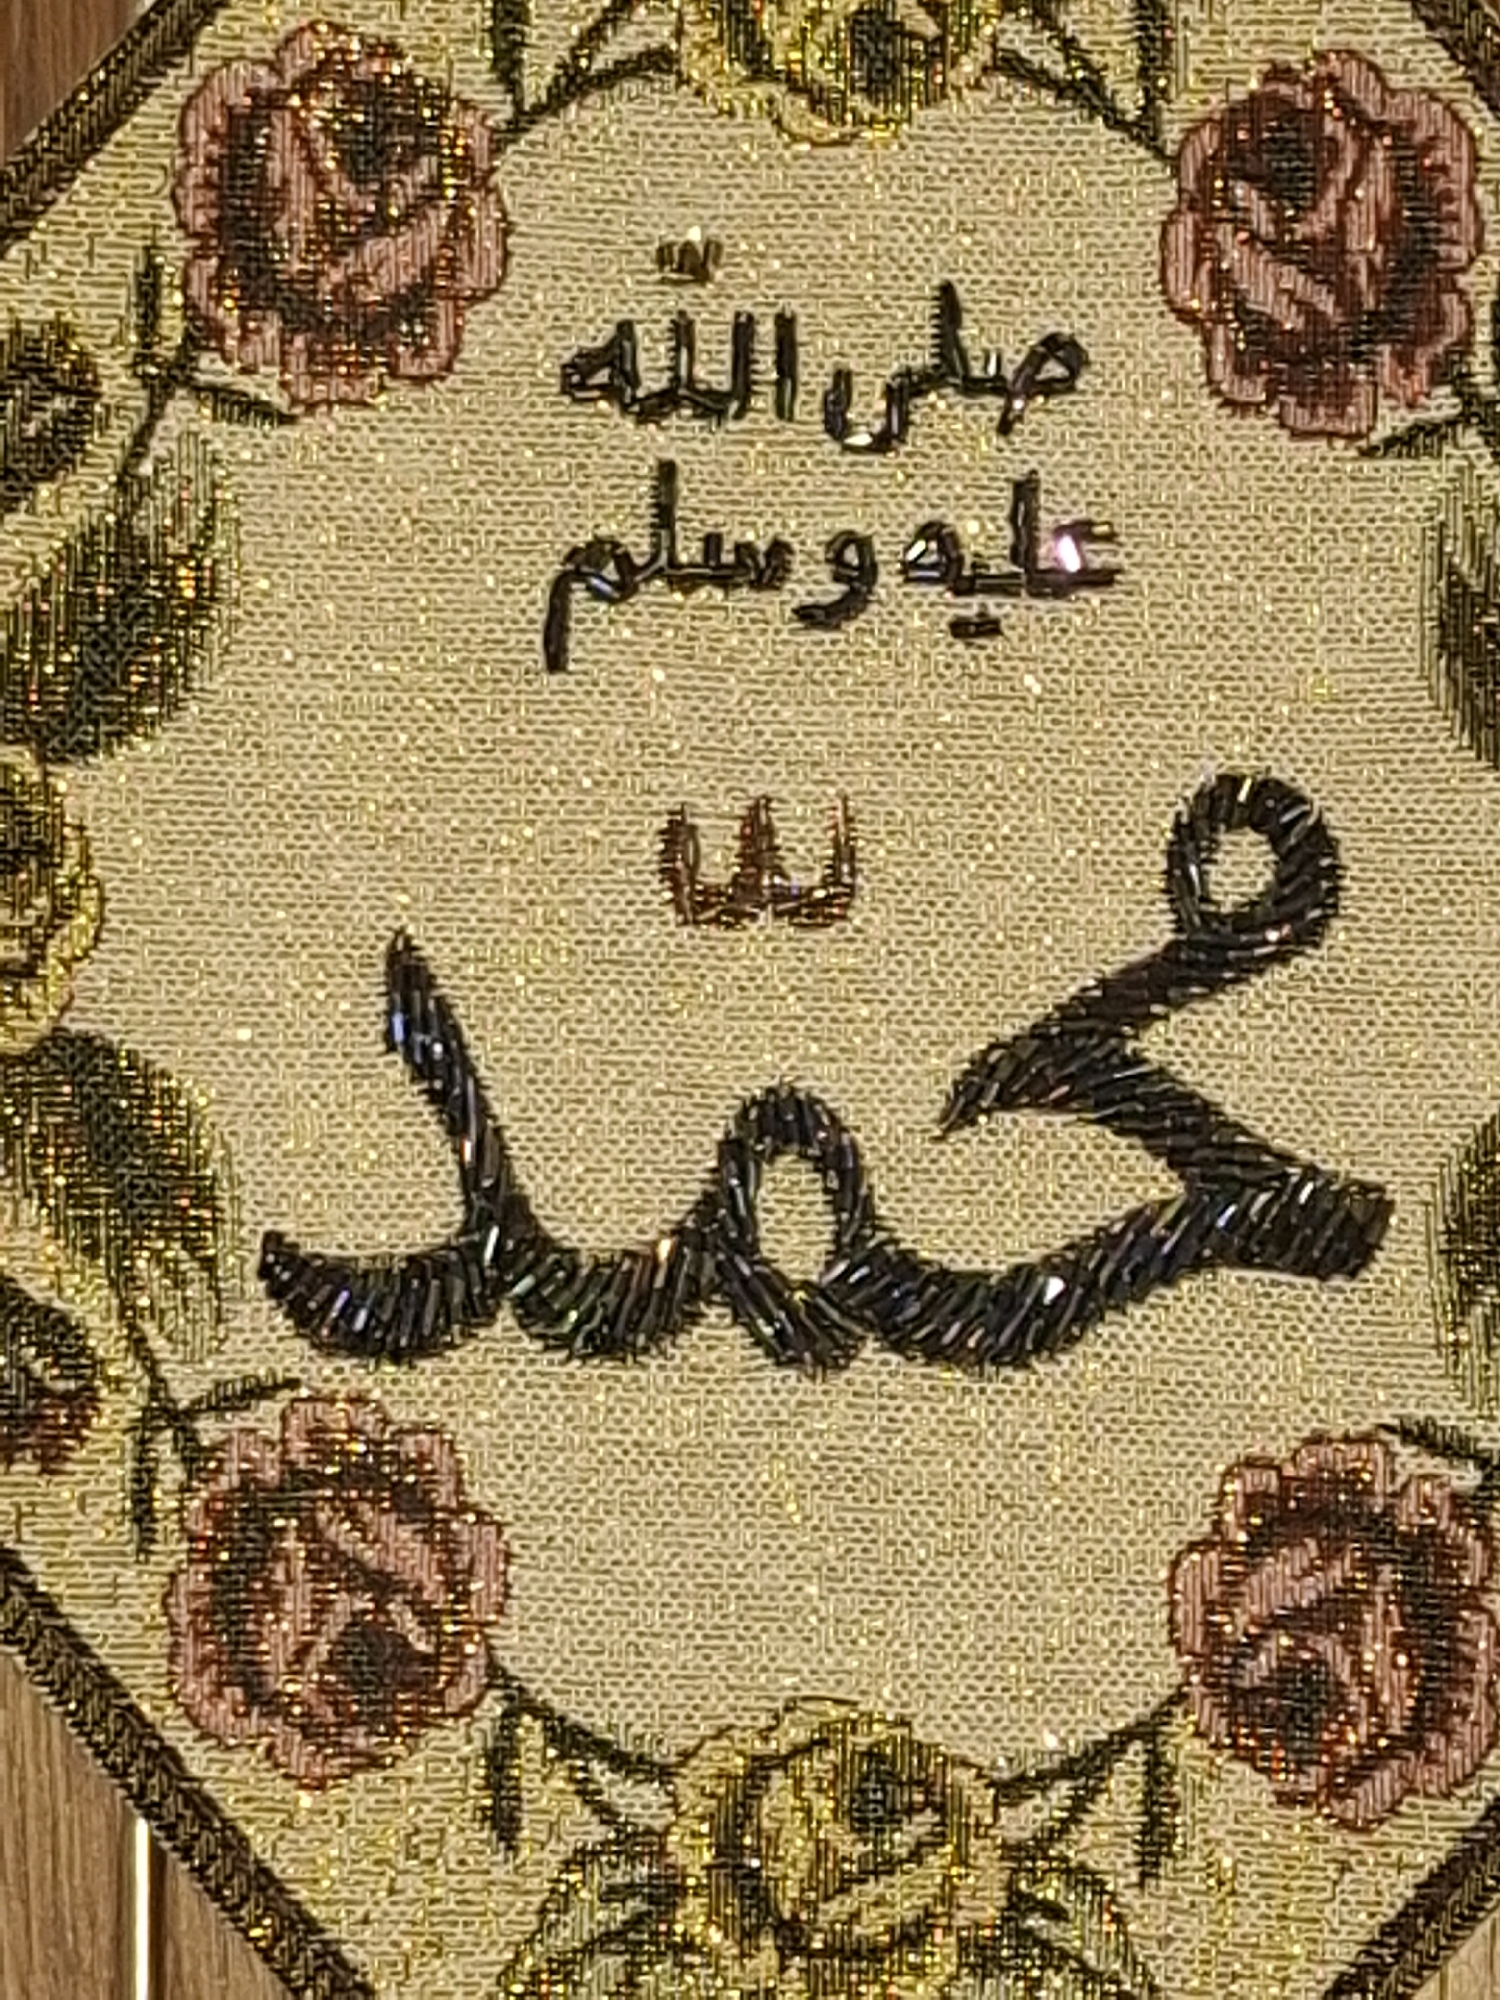 صلى اللّه
عليه وسلم
محمّد